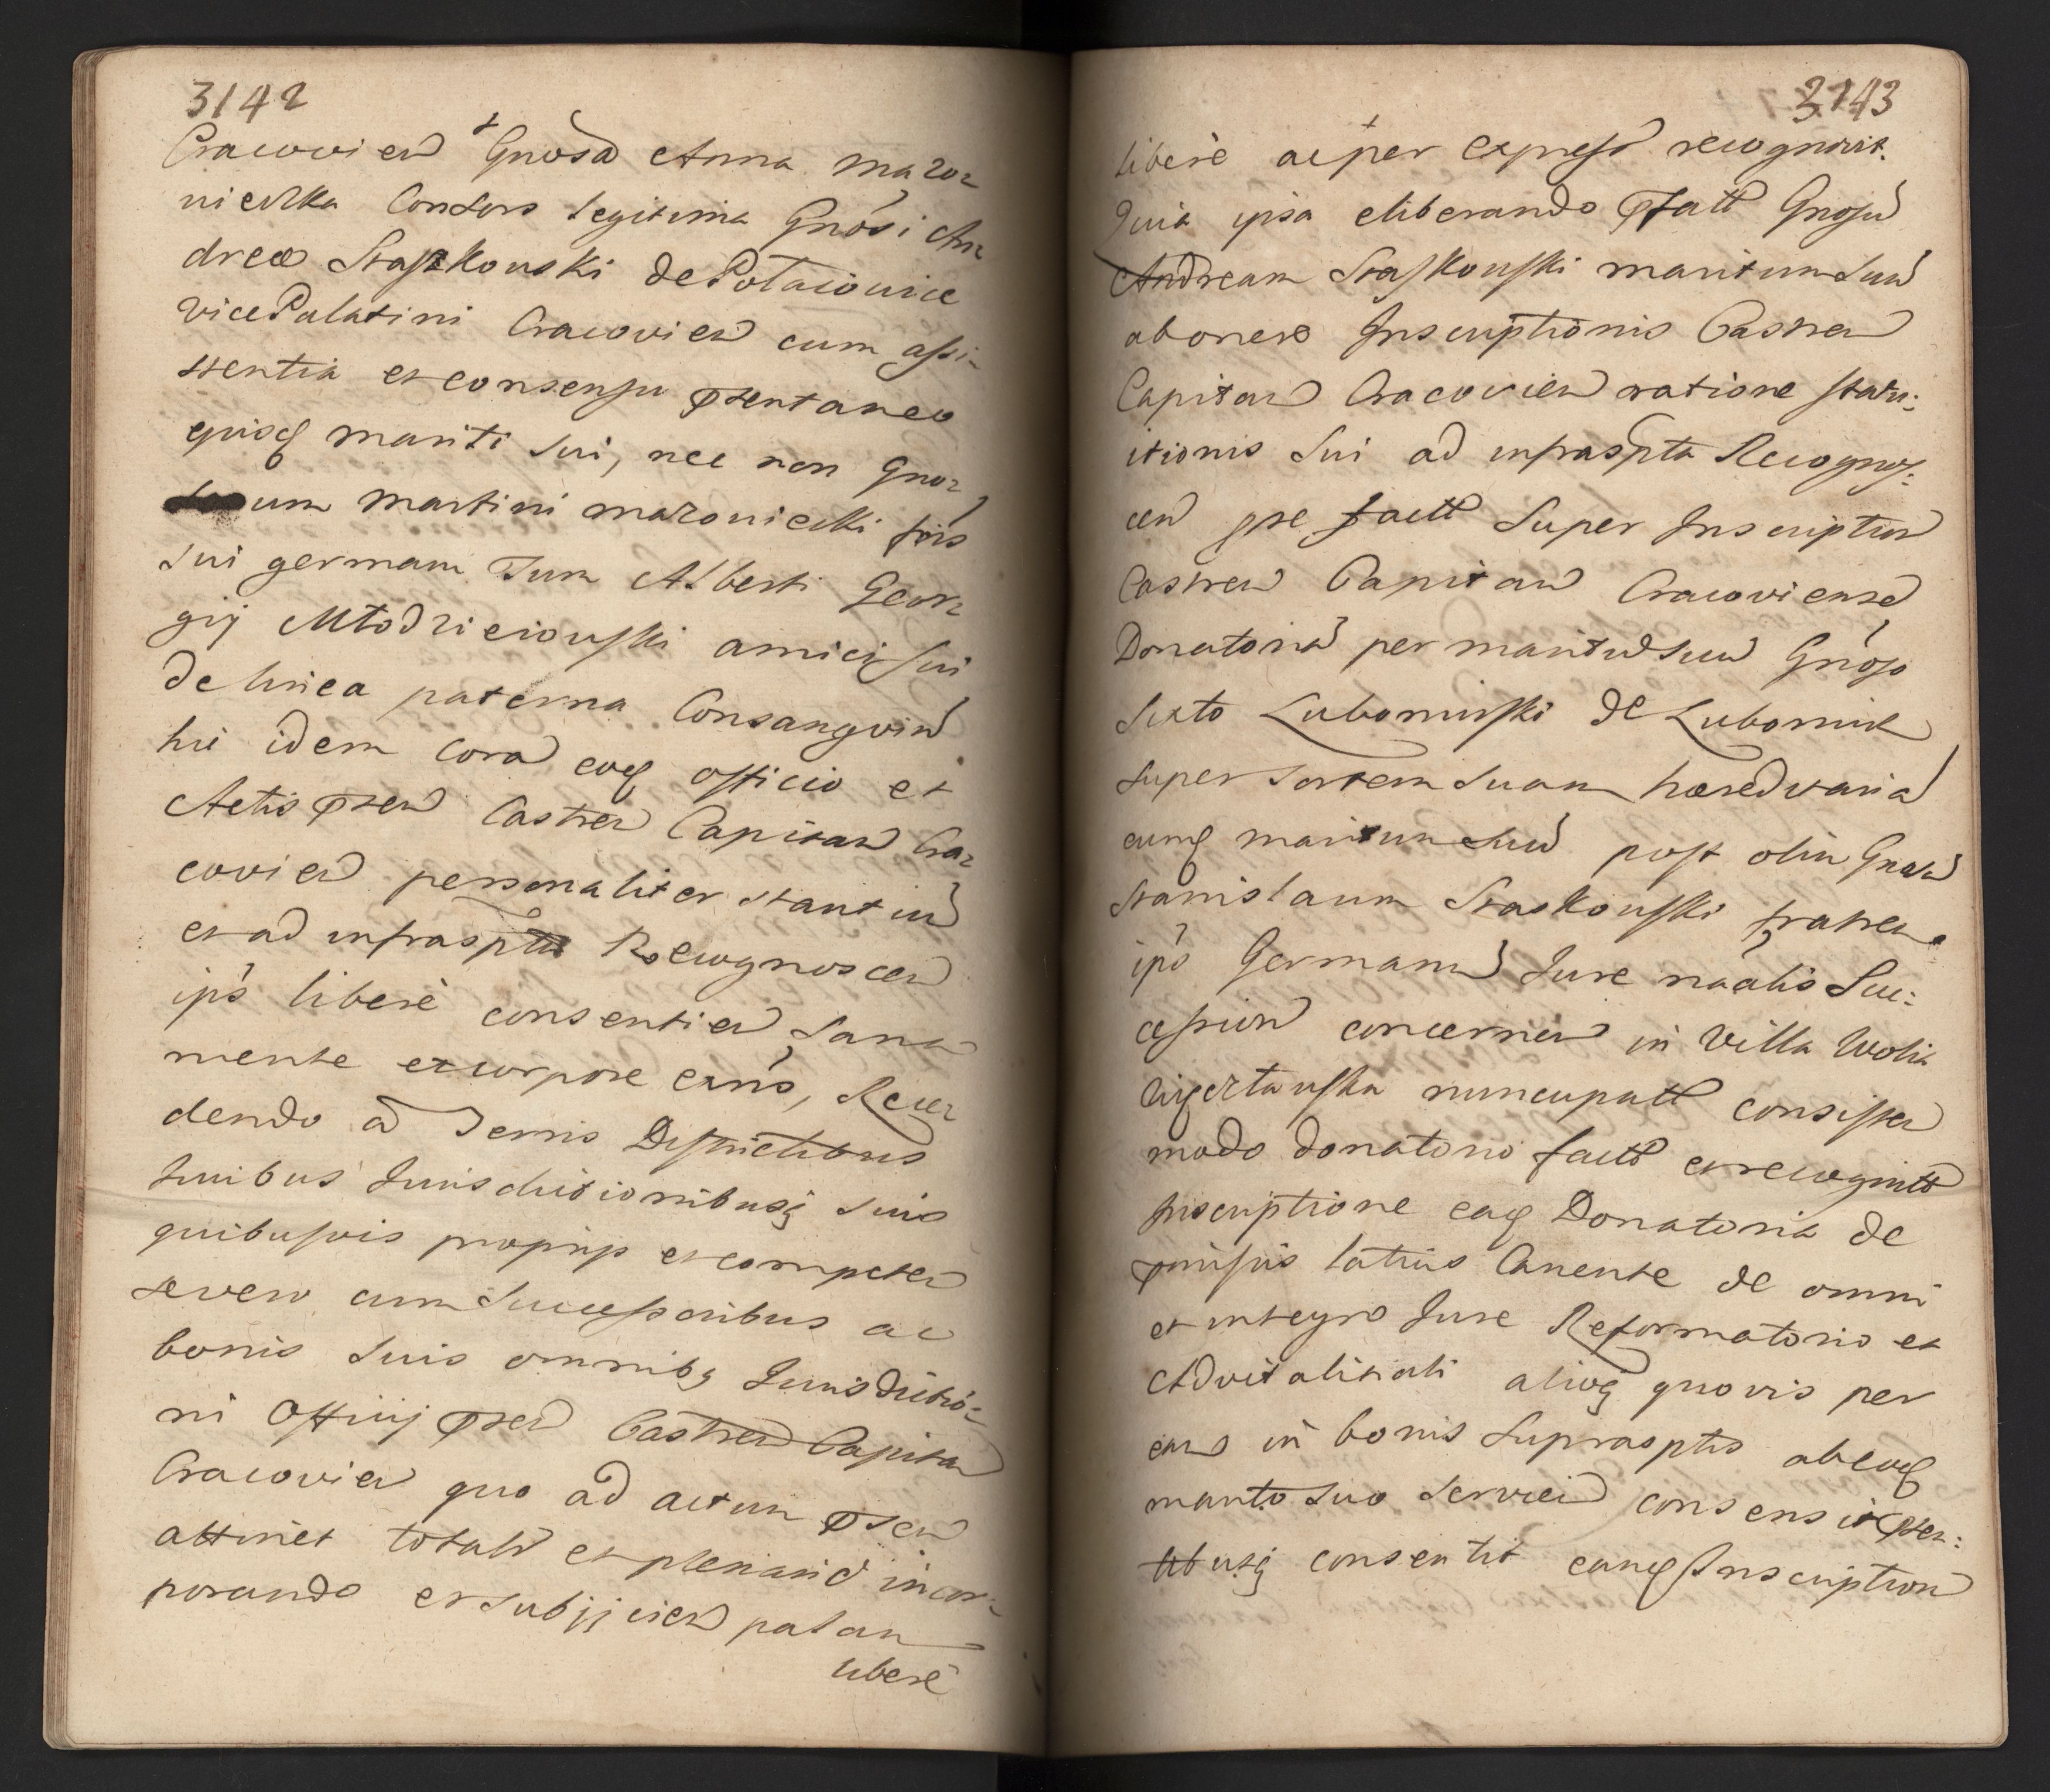 3142
Cracovien Gnosa Anna Mazo-
niecka Consors legitima Gnosi An-
dreæ Staszkowski de
vicePalatini Cracovien cum assi-
stentia et consensu pntaneo
eiusq mariti sui, nec non Gnor
um Martini Mazoniecki fris
sui germani Tum Alberti Geor-
gij Młodzieiowski amici sui
de linea paterna Consangvin
hic idem Cora eoq officio et
Actis pnten Castren Capitan Cra-
covien personaliter stantiu
et ad infrasptu Recognoscen
ips liberè consentien sana
mente et corpore exns, Rece-
dendo à Terris Districtibus
Juribus Jurisdictionibusq suis
quibusvis proprijs et competen
severo cum Successoribus ac
bonis suis omnibq Jurisdictio-
ni Offij pnten Castren Capitan
Cracovien quo ad actum pnten
attinet totalr et plenariè incor-
porando et subijcien palam
liberè
3143
liberè ac per express recognovit.
Quia ipsa eliberando pfatt Gnosu
Andream Staskowski maritum suu
ab onere Inscriptionis Castren
Capitan Cracovien ratione statu-
itionis sui ad infraspta Recognos-
cen pse factt super Inscription
Castren Capitan Cracoviense
Donatoria per maritu suu Gnoso
Sixto Lubomirski de Lubomirz
super sortem suam hæreditaria
eunq maritum suu post olim Gnosu
Stanislaum Staskowski fratrem
ips Germanu Jure naalis Suc-
cession concernen in Villa Wolia
nuncupatt consisten
modo donatorio factt et recognitt
Inscriptione eaq Donatoria de
pmissis latius Canente de omni
et integro Jure Reformatorio et
Advitalitali alioq quovis per
eam in bonis suprasptis ab eoq
marito suo servien consensit psen-
tibusq consentit eamq Inscription